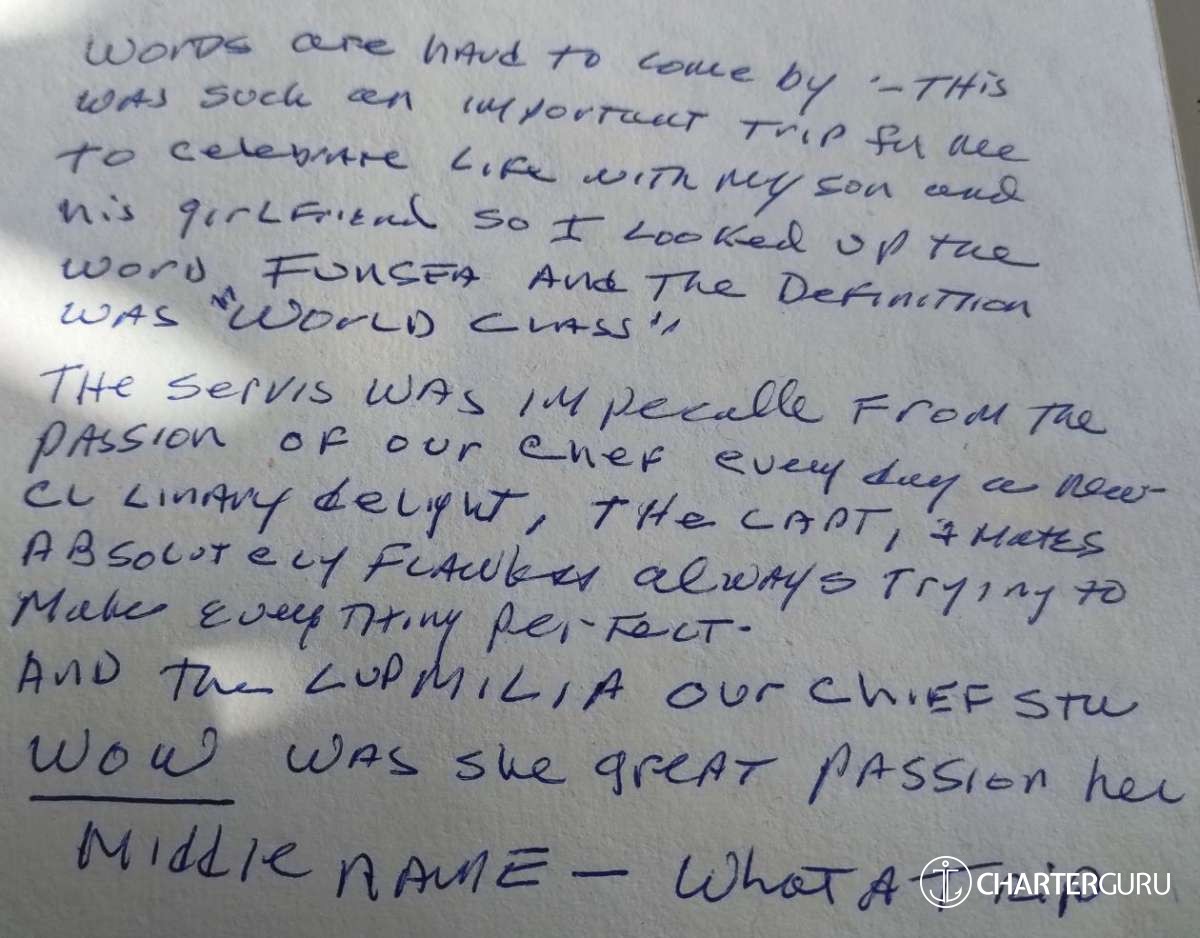 WORDS are hard to come by - THIS
WAS such an IMPORTANT TRIP for me
TO celebrate LIFE WITH MY son and
his girLFriend so I Looked up the
WOrD FUNSEA And The DeFinITTion
WAS "WOrLD CLASS"
THe servis WAS IMpecalle From The
pASSION OF our CHeF every day a new
CULinary deLight, THe CAPT, + MATES
ABSOLUTELY FLAWless always Trying to
Make EveryTHing perFecT.
AND The LUDMILIA our CHIEF STU
WOW WAS she greAT pASSION her
Middle NAME - WhAT A Trip
CHARTERGURU